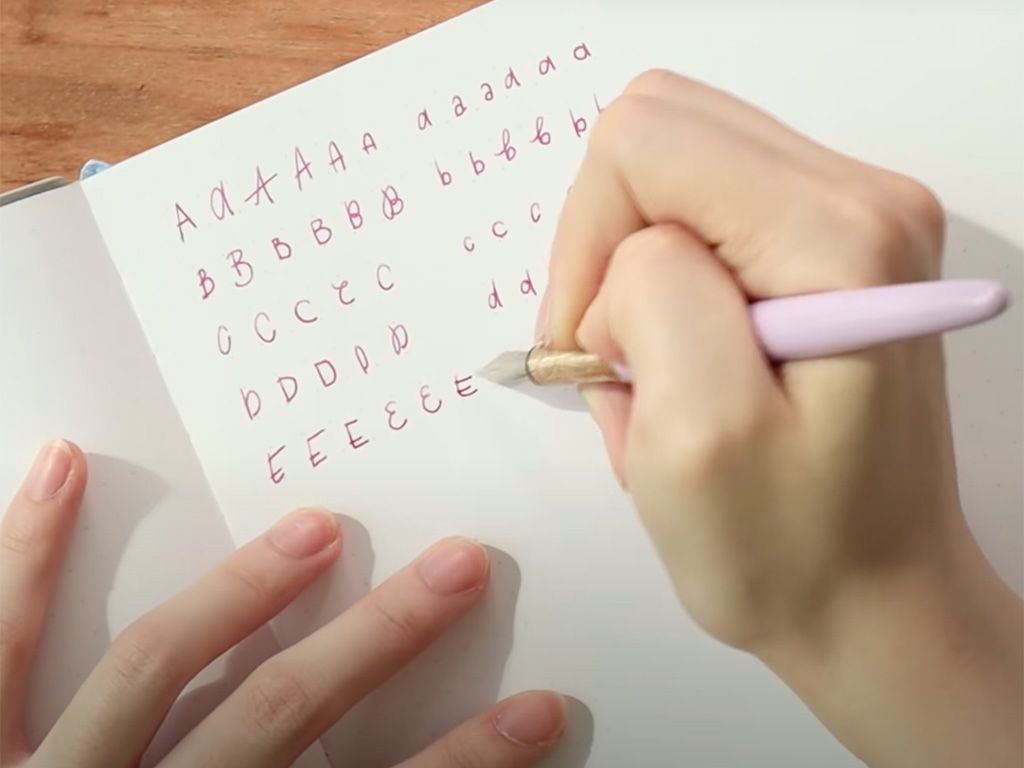 A A A A A A a a a a a a
B B B B B B b b b b b
C C C C C c c c
D D D D D d d
E E E E E E